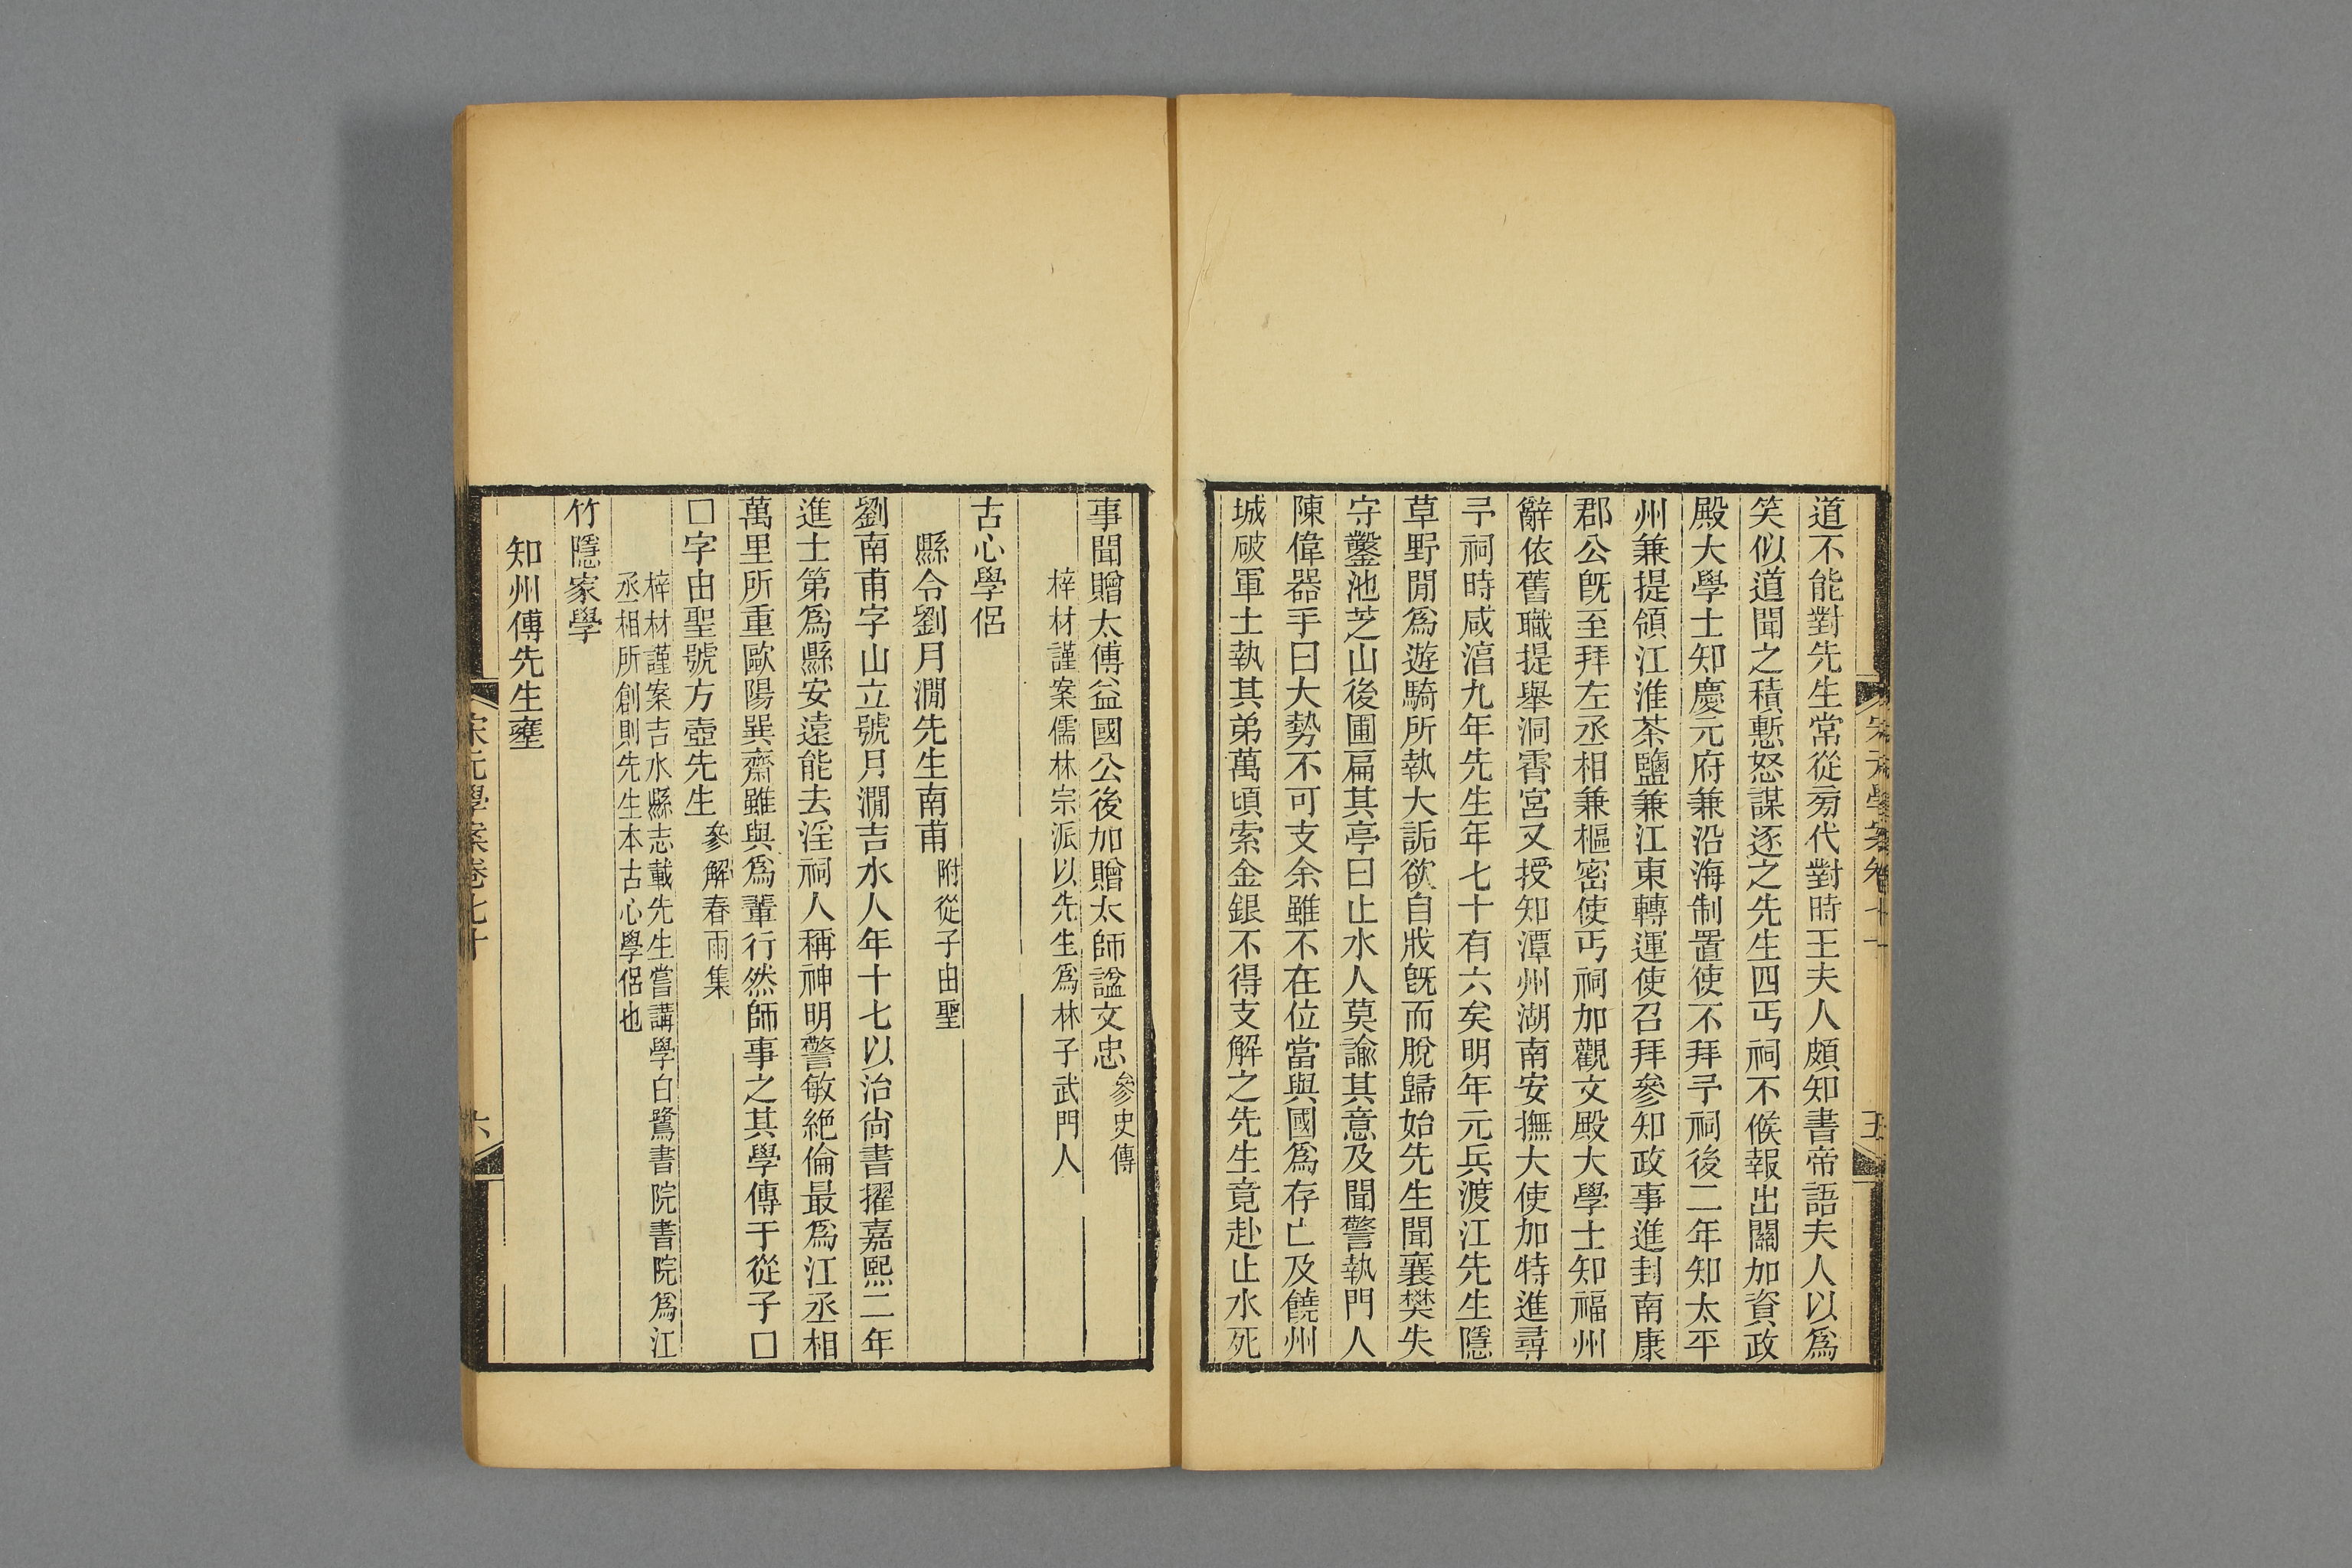 道不能對先生常從旁代對時王夫人頗知書帝語夫人以爲
笑似道聞之積慙怒謀逐之先生四丐祠不候報出關加資政
殿大學士知慶元府兼沿海制置使不拜予祠後二年知太平
州兼提領江淮茶鹽兼江東轉運使召拜參知政事進封南康
郡公旣至拜左丞相兼樞密使丐祠加觀文殿大學士知福州
辭依舊職提舉洞霄宮又授知潭州湖南安撫大使加特進尋
予祠時咸淳九年先生年七十有六矣明年元兵渡江先生隱
草野閒爲遊騎所執大詬欲自戕旣而脫歸始先生聞襄樊失
守鑿池芝山後圃扁其亭曰止水人莫諭其意及聞警執門人
陳偉器手曰大勢不可支余雖不在位當與國爲存亡及饒州
城破軍士執其弟萬頃索金銀不得支解之先生竟赴止水死
宋元學案卷七十
五
事聞贈太傅益國公後加贈太師諡文忠參史傳
梓材謹案儒林宗派以先生爲林子武門人
古心學侶
縣令劉月澗先生南甫附從子由聖
劉南甫字山立號月澗吉水人年十七以治尙書擢嘉熙二年
進士第爲縣安遠能去淫祠人稱神明警敏絶倫最爲江丞相
萬里所重歐陽巽齋雖與爲輩行然師事之其學傳于從子□
□字由聖號方壺先生參解春雨集
梓材謹案吉水縣志載先生嘗講學白鷺書院書院爲江
丞相所創則先生本古心學侶也
竹隱家學
知州傅先生壅
宋元學案卷七十
六